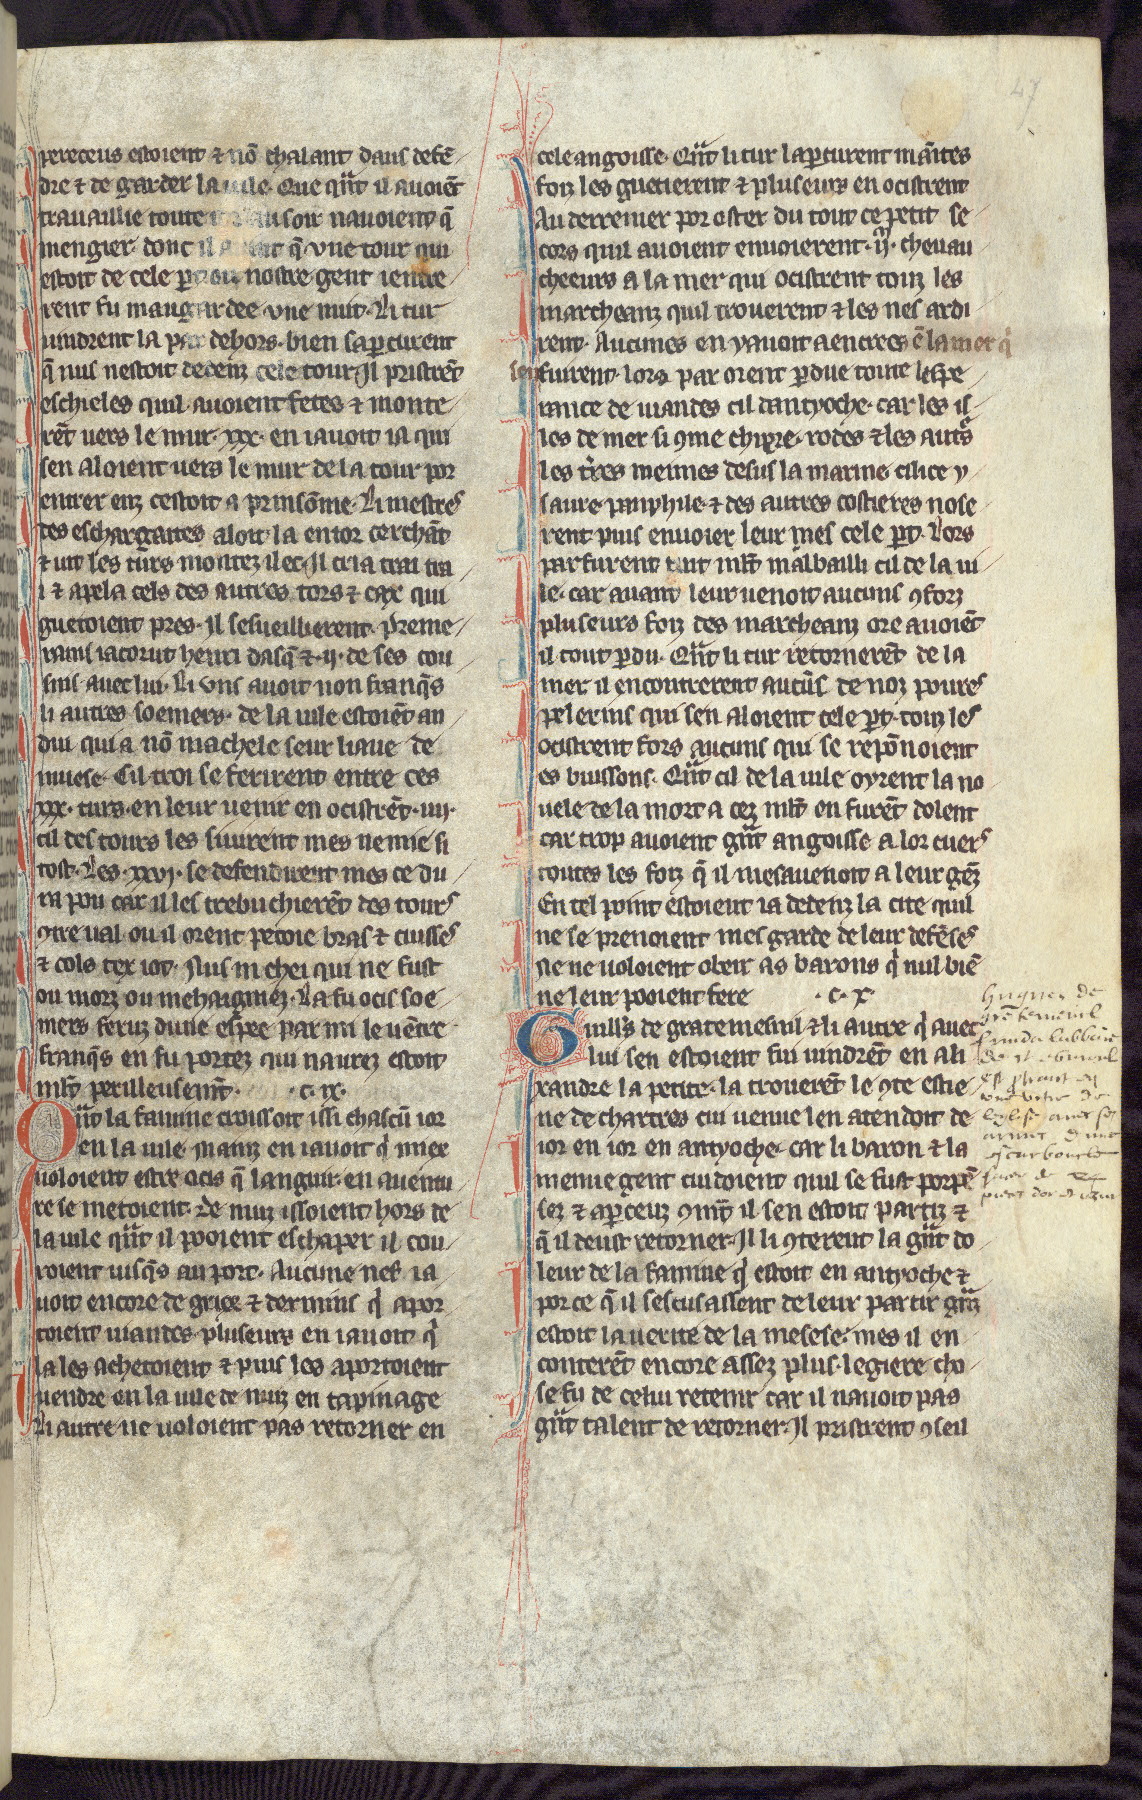 47
pereceus estoient ⁊ nō chalant dans defē
dre ⁊ de garder la uile. Que qn̄t il auoiēt
trauaillie toute iour au soir nauoient q̄
mengier. donc il auint q̄ vne tour qui
estoit de cele part ou nostre gent ientre
rent fu maugardee vne nuit. Li tur
uindrent la par dehors. bien saꝑcurent
q̄ nus nestoit dedenz cele tour. Il pristrēt
eschieles quil auoient fetes ⁊ monte
rēt uers le mur. xxx. en iauoit ia qui
sen aloient uers le mur de la tour por
entrer enz cestoit a prinsōme. Li mestres
des eschargaites aloit la entor cerchāt
⁊ uit les turs montez ilec. Il cria trai tra
i ⁊ apela cels des autres tors ⁊ cax qui
guetoient pres. Il sesueillierent. preme
rains iacorut henri dasq̄ ⁊ .ij. de ses cou
sins auec lui. Li vns auoit non franq̄s
li autres soemers. de la uile estoiēt an
dui qui a nō machele seur liaue de
muese. Cil troi se ferirent entre ces
xxx. turs. en leur uenir en ocistrēt .iiij.
cil des tours les suiurent mes ne mie si
tost. Les .xxvj. se defendirent mes ce du
ra pou car il les trebuchierēt des tours
ꝯtre ual ou il orent pecoie bras ⁊ cuisses
⁊ cols tex iot. Nus ni chei qui ne fust
ou morz ou mehaigniez. La fu ocis soe
mers feruz dune espee par mi le uētre
franq̄s en fu portez qui naurez estoit
ml̄t perilleusemt̄. .c. ix.
Qn̄t la famine croissoit issi chascū ior
en la uile. Mainz en iauoit q̇ miex
uoloient estre ocis q̄ languir. en auentu
re se metoient. De nuiz issoient hors de
la uile qn̄t il pooient eschaper il cou
roient iusq̄s au port. Aucune nef ia
uoit encore de grice ⁊ dermins q̇ apor
toient uiandes. pluseurs en iauoit q̇
la les achetoient ⁊ puis les aportoient
uendre en la uile de nuiz en tapinage
Li autre ne uoloient pas retorner en
cele angoisse. Qn̄t li tur laꝑcurent maītes
foiz les guetierent ⁊ pluseurs en ocistrent
Au derrenier por oster du tout ce petit se
cors quil auoient enuoierent .ijᵐ. cheuau
cheeurs a la mer qui ocistrent touz les
marcheanz quil trouerent ⁊ les nes ardi
rent. Aucunes en yauoit aencrees ē la mer q̇
sen fuirent. lors par orent ꝑdue toute lespe
rance de uiandes cil dantyoche. car les il
les de mer si ꝯme chipre. rodes ⁊ les autres
les tr̄es meimes desus la marine. cilice y
saure. panphile. ⁊ des autres costieres nose
rent puis enuoier leur mes cele ꝑt. Lors
par furent tuit ml̄t malbailli cil de la ui
le. car auant leur uenoit aucuns ꝯforz
pluseurs foiz des marcheanz ore auoiēt
il tout ꝑdu. Qn̄t li tur retornerēt de la
mer il encontrerent aucūs de noz poures
pelerins qui sen aloient cele ꝑt. touz les
ocistrent fors aucuns qui se reponoient
es buissons. Qn̄t cil de la uile oyrent la no
uele de la mort a cez ml̄t en furēt dolent
car trop auoient gn̄t angoisse a lor cuers
toutes les foiz q̄ il mesauenoit a leur gēz
En tel point estoient ia dedenz la cite quil
ne se prenoient mes garde de leur defēses
Ne ne uoloient obeir as barons q̇ nul biē
ne leur pooient fere .c. x
Guill's de grantemesnil ⁊ li autre q̇ auec
lui sen estoient fui uindrēt en ali
xandre la petite. la trouerēt le ꝯte estie
ne de chartres cui uenue len atendoit de
ior en ior en antyoche. car li baron ⁊ la
menue gent cuidoient quil se fust porpē
sez ⁊ aꝑceuz ꝯmt̄ il sen estoit partiz ⁊
q̄ il deust retorner. Il li ꝯterent la gn̄t do
leur de la famine q̇ estoit en antyoche ⁊
por ce q̄ il sescusassent de leur partir gn̄z
estoit la uerite de la mesese. mes il en
conterēt encore assez plus. legiere cho
se fu de celui retenir car il nauoit pas
gn̄t talent de retorner. Il pristrent ꝯseil
hugues de